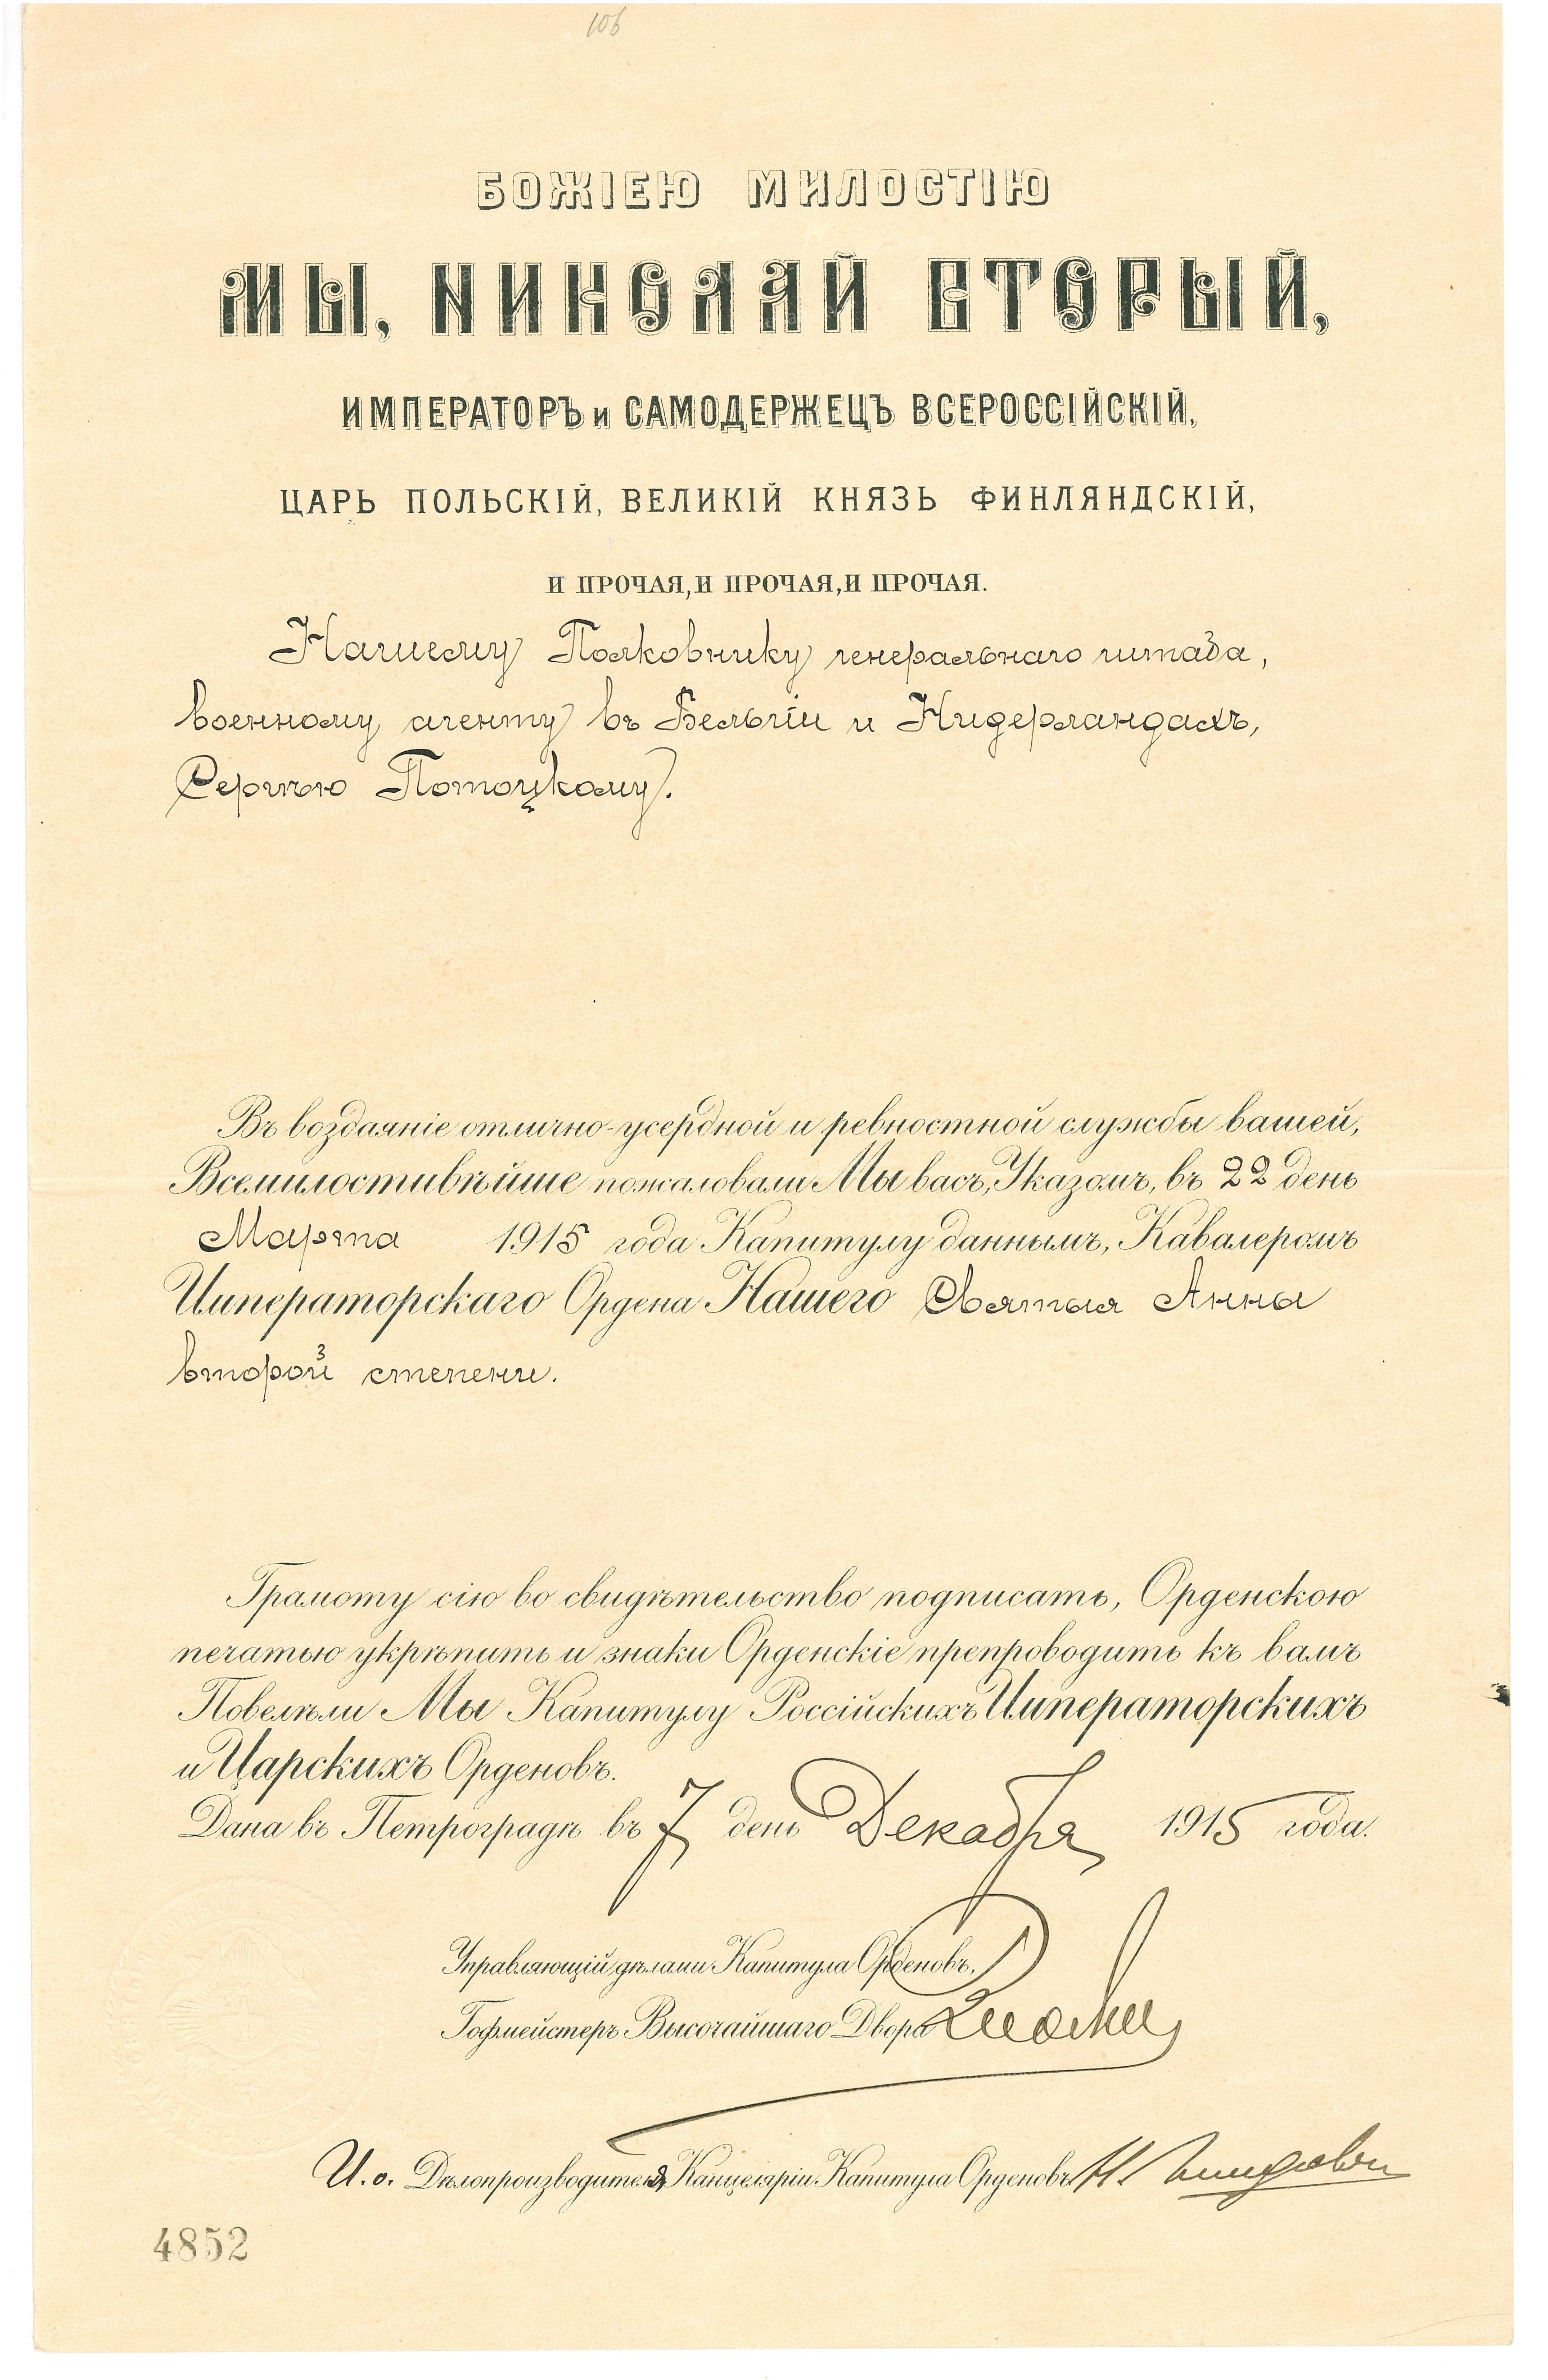 106
БОЖІЕЮ МИЛОСТІЮ
МЫ, НИКОЛАЙ ВТОРЫЙ,
ИМПЕРАТОРЪ и САМОДЕРЖЕЦЪ ВСЕРОССІЙСКІЙ,
ЦАРЬ ПОЛЬСКІЙ, ВЕЛИКІЙ КНЯЗЬ ФИНЛЯНДСКІЙ,
И ПРОЧАЯ, И ПРОЧАЯ, И ПРОЧАЯ.
Нашему Полковнику генеральнаго штаба,
военному агенту въ Бельгіи и Нидерландахъ,
Сергѣю Потоцкому.
Въ воздаяніе отлично-усердной и ревностной службы вашей,
Всемилостивѣйше пожаловали Мы васъ, Указомъ, въ 22 день
Марта 1915 года Капитулу даннымъ, Кавалеромъ
Императорскаго Ордена Нашего Святыя Анны
второй степени.
Грамоту сію во свидѣтельство подписать, Орденскою
печатью укрѣпить и знаки Орденскіе препроводить къ вамъ
Повелѣли Мы Капитулу Россійскихъ Императорскихъ
и Царскихъ Орденовъ.
Дана въ Петроградѣ въ 7 день Декабря 1915 года.
Управляющій дѣлами Капитула Орденовъ,
Гофмейстеръ Высочайшаго Двора
И. о. Дѣлопроизводителя Канцеляріи Капитула Орденовъ
4852